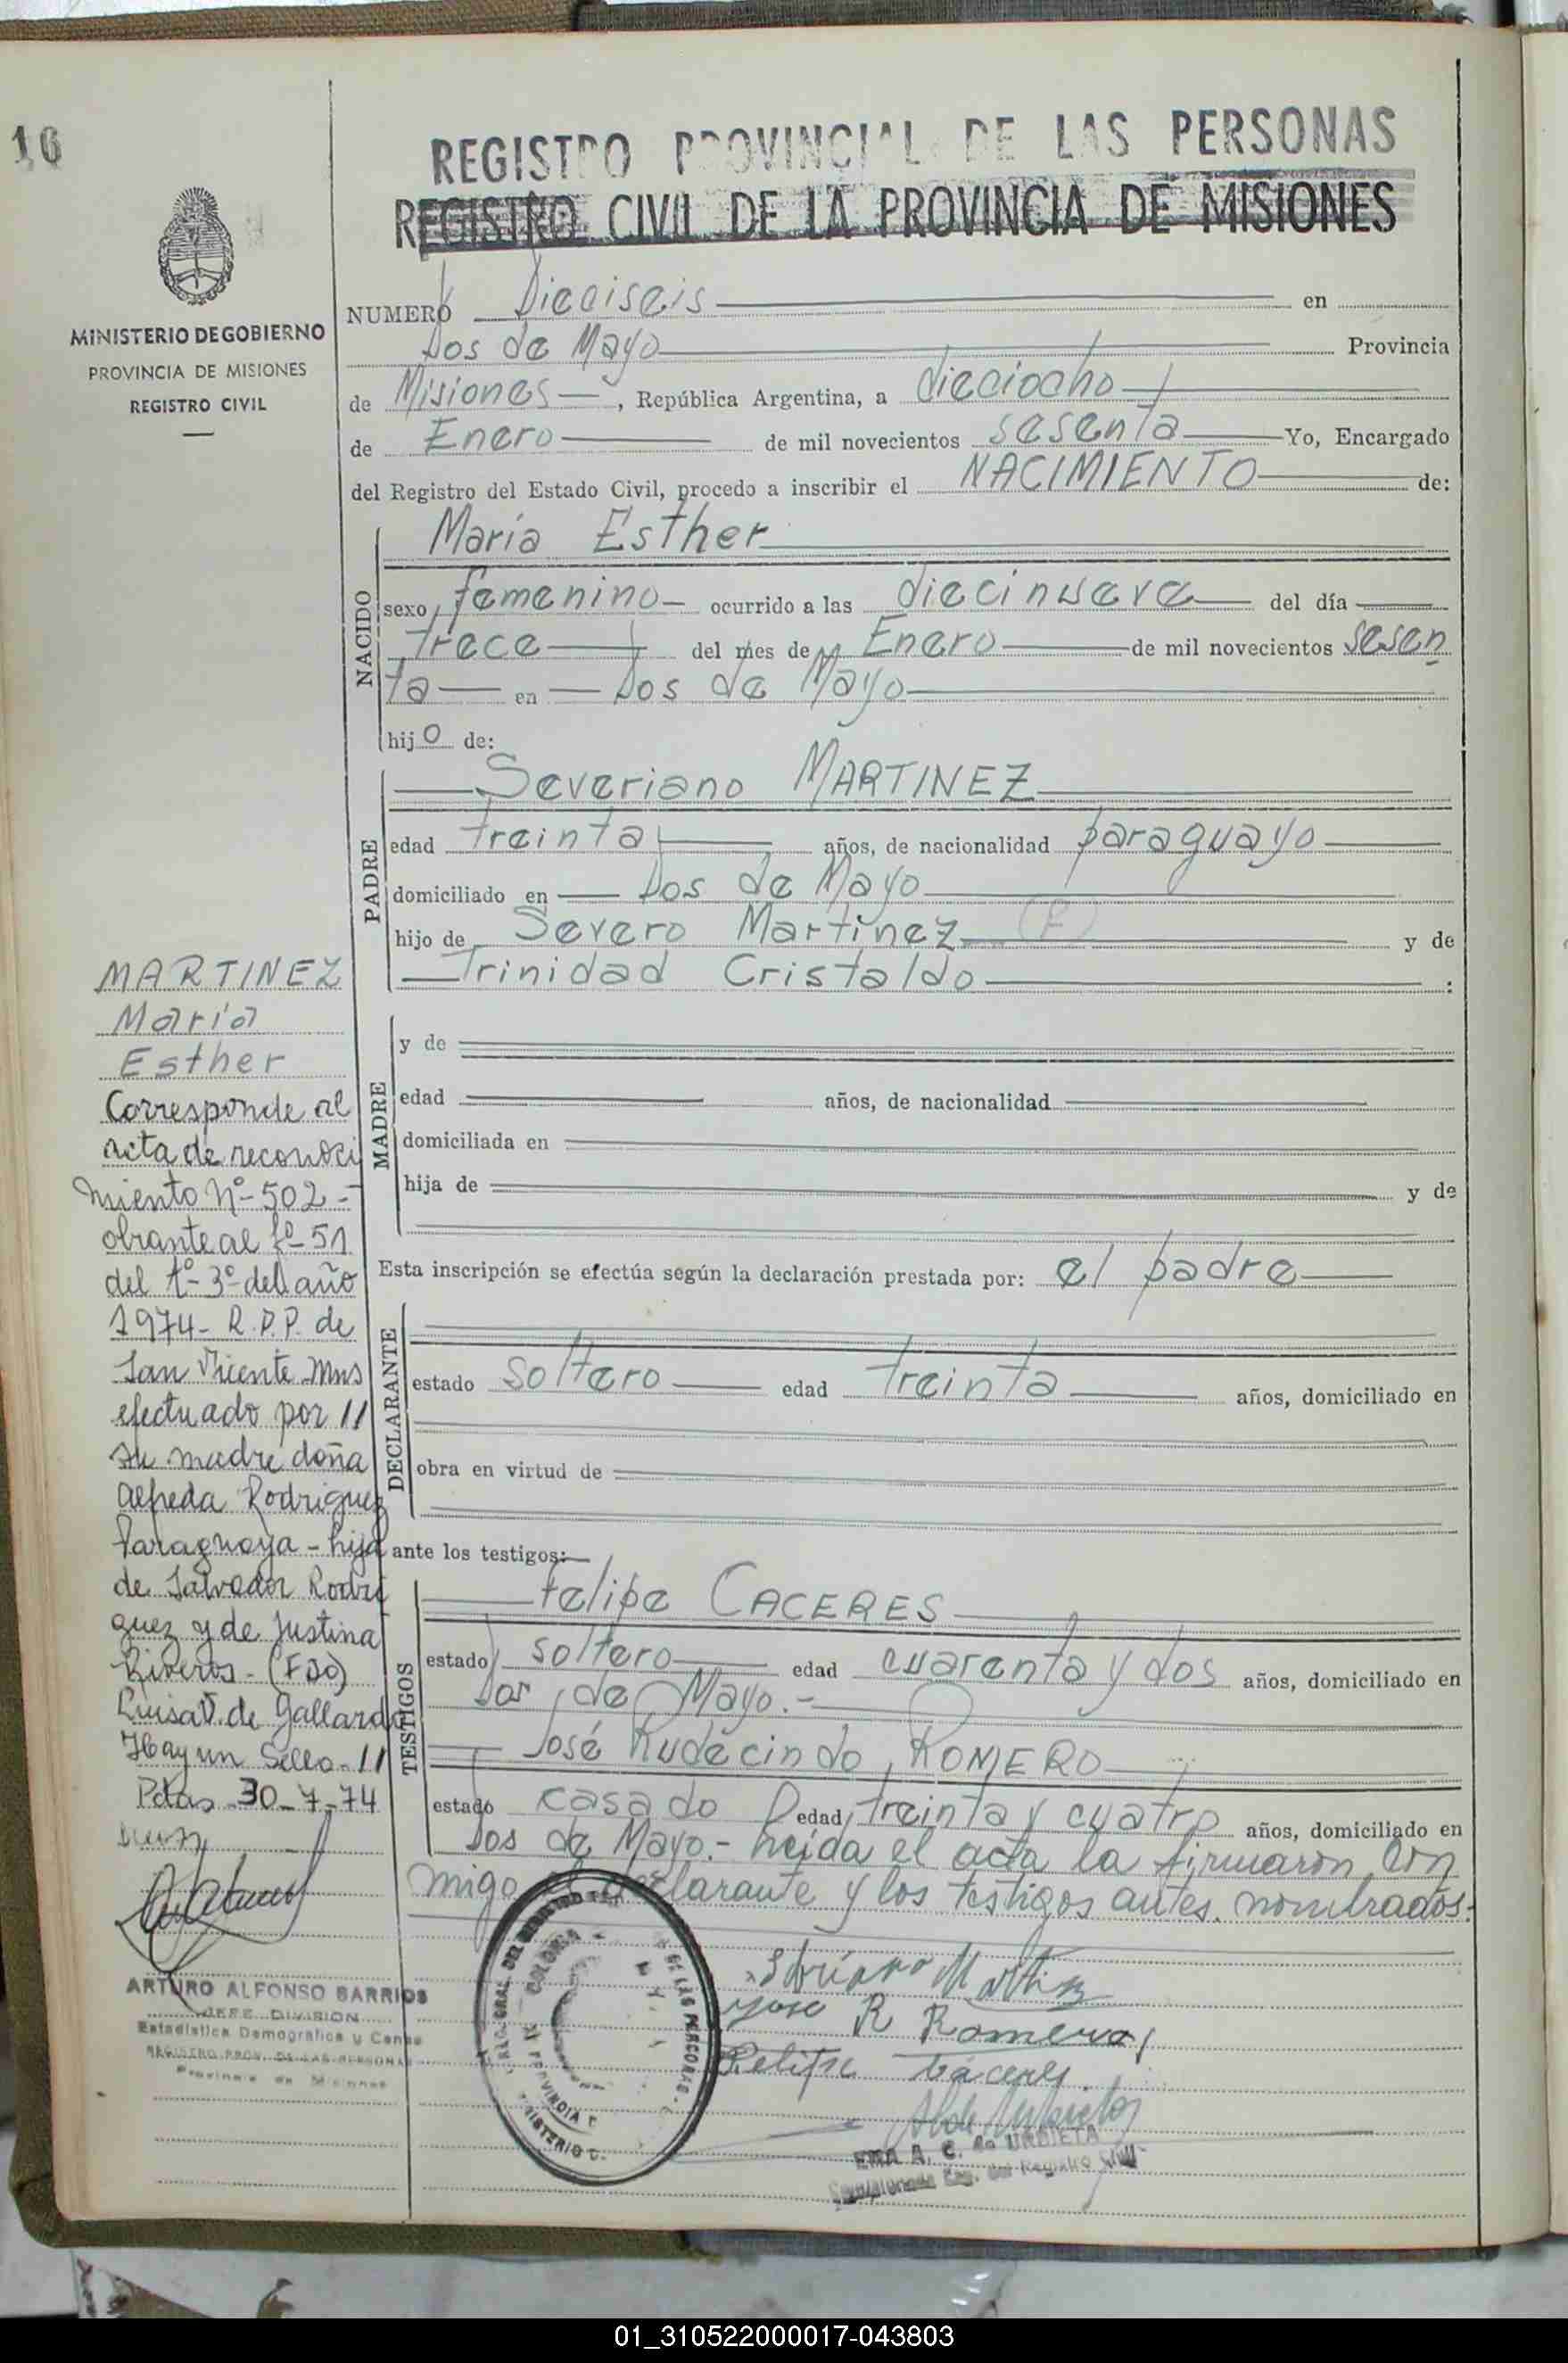 16
REGISTRO PROVINCIAL DE LAS PERSONAS
REGISTRO CIVIL DE LA PROVINCIA DE MISIONES
MINISTERIO DE GOBIERNO
PROVINCIA DE MISIONES
REGISTRO CIVIL
NUMERO Dieciseis en
Dos de Mayo Provincia
de Misiones, República Argentina, a dieciocho
de Enero de mil novecientos sesenta Yo, Encargado
del Registro del Estado Civil, procedo a inscribir el NACIMIENTO de:
NACIDO
María Esther
sexo femenino ocurrido a las diecinueve del día
trece del mes de Enero de mil novecientos sesen
ta en Dos de Mayo
hijo de:
PADRE
Severiano MARTINEZ
edad treinta años, de nacionalidad paraguayo
domiciliado en Dos de Mayo
hijo de Severo Martínez (F) y de
Trinidad Cristaldo :
MADRE
y de
edad años, de nacionalidad
domiciliada en
hija de y de
Esta inscripción se efectúa según la declaración prestada por: el padre
DECLARANTE
estado soltero edad treinta años, domiciliado en
obra en virtud de
ante los testigos:
TESTIGOS
Felipe CACERES
estado soltero edad cuarenta y dos años, domiciliado en
Dos de Mayo.-
José Rudecindo ROMERO
estado casado edad treinta y cuatro años, domiciliado en
Dos de Mayo.- Leida el acta la firmaron con
migo el declarante y los testigos antes nombrados.
MARTINEZ
María
Esther
Corresponde al
acta de reconoci
miento Nº- 502 -
obrante al fº- 51
del tº- 3º del año
1974- R.P.P. de
San Vicente Mns
efectuado por //
su madre doña
Alfreda Rodriguez
Paraguaya - hija
de Salvador Rodri
guez y de Justina
Riveros - (FDO)
Luisa V. de Gallardo
Hay un Sello - //
Pdas 30-7-74
ARTURO ALFONSO BARRIOS
JEFE DIVISION
Estadística Demográfica y Censo
REGISTRO PROV. DE LAS PERSONAS
Provincia de Misiones
Martinez
Jose R Romero
Felipe Cáceres
EMA A. C. de URBIETA
Enc. del Registro Civil
01_310522000017-043803